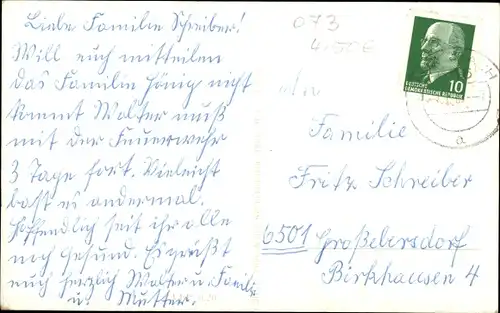 Liebe Familie Schreiber!
Will euch mitteilen
das Familie König nicht
kommt Walter muß
mit der Feuerwehr
3 Tage fort. Vieleicht
bast es andermal.
Hoffendlich seit ihr alle
noch gesund. Es grüßt
euch herzlich Walter u. Familie
u. Mutter.
073
4.50€
10
DEUTSCHE
DEMOKRATISCHE REPUBLIK
a
An
Familie
Fritz Schreiber
6501 Großebersdorf
Birkhausen 4